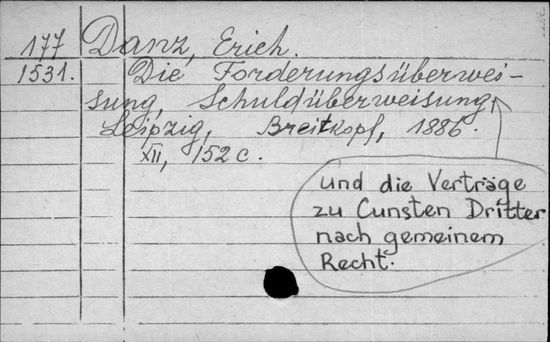 177 Danz, Erich.
1531. Die Forderungsüberwei-
sung, Schuldüberweisung,
Leipzig, Breitkopf, 1886.
XII, 152 c.
und die Verträge
zu Cunsten Dritter
nach gemeinem
Recht.